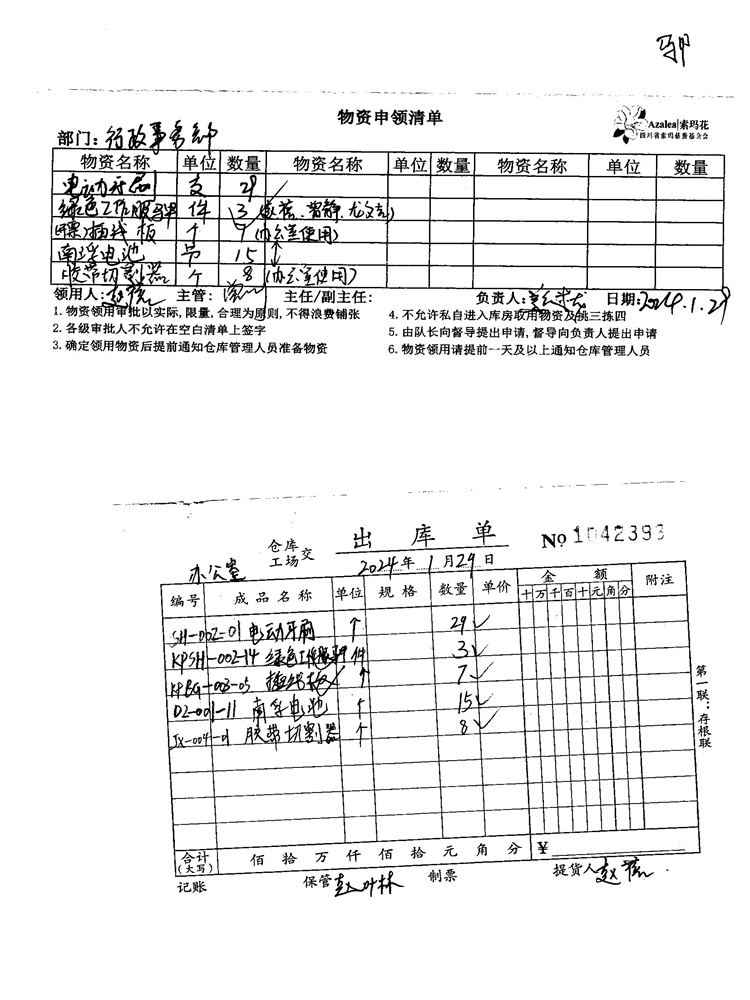 物资申领清单
Azalea|索玛花
四川省索玛慈善基金会
部门：行政事务部
物资名称 单位 数量 物资名称 单位 数量 物资名称 单位 数量
电动牙刷 支 29
绿色工作服 件 3
插线板 个 7 (办公室使用)
南孚电池 节 15
胶带切割器 个 8 (办公室使用)
领用人: 主管: 主任/副主任: 负责人: 日期:2024.1.29
1. 物资领用审批以实际, 限量, 合理为原则, 不得浪费铺张
2. 各级审批人不允许在空白清单上签字
3. 确定领用物资后提前通知仓库管理人员准备物资
4. 不允许私自进入库房取用物资及挑三拣四
5. 由队长向督导提出申请, 督导向负责人提出申请
6. 物资领用请提前一天及以上通知仓库管理人员
出库单
仓库
工场交
No 1042393
办公室
2024年1月29日
编号 成品名称 单位 规格 数量 单价 金额 附注
十万千百十元角分
SH-002-01 电动牙刷 个 29
KPSH-002-14 绿色工作服 件 3
KPBG-003-05 插线板 个 7
DZ-001-11 南孚电池 个 15
JX-004-01 胶带切割器 个 8
第一联：存根联
合计
(大写)
佰 拾 万 仟 佰 拾 元 角 分 ¥
记账 保管 赵叶林 制票 提货人